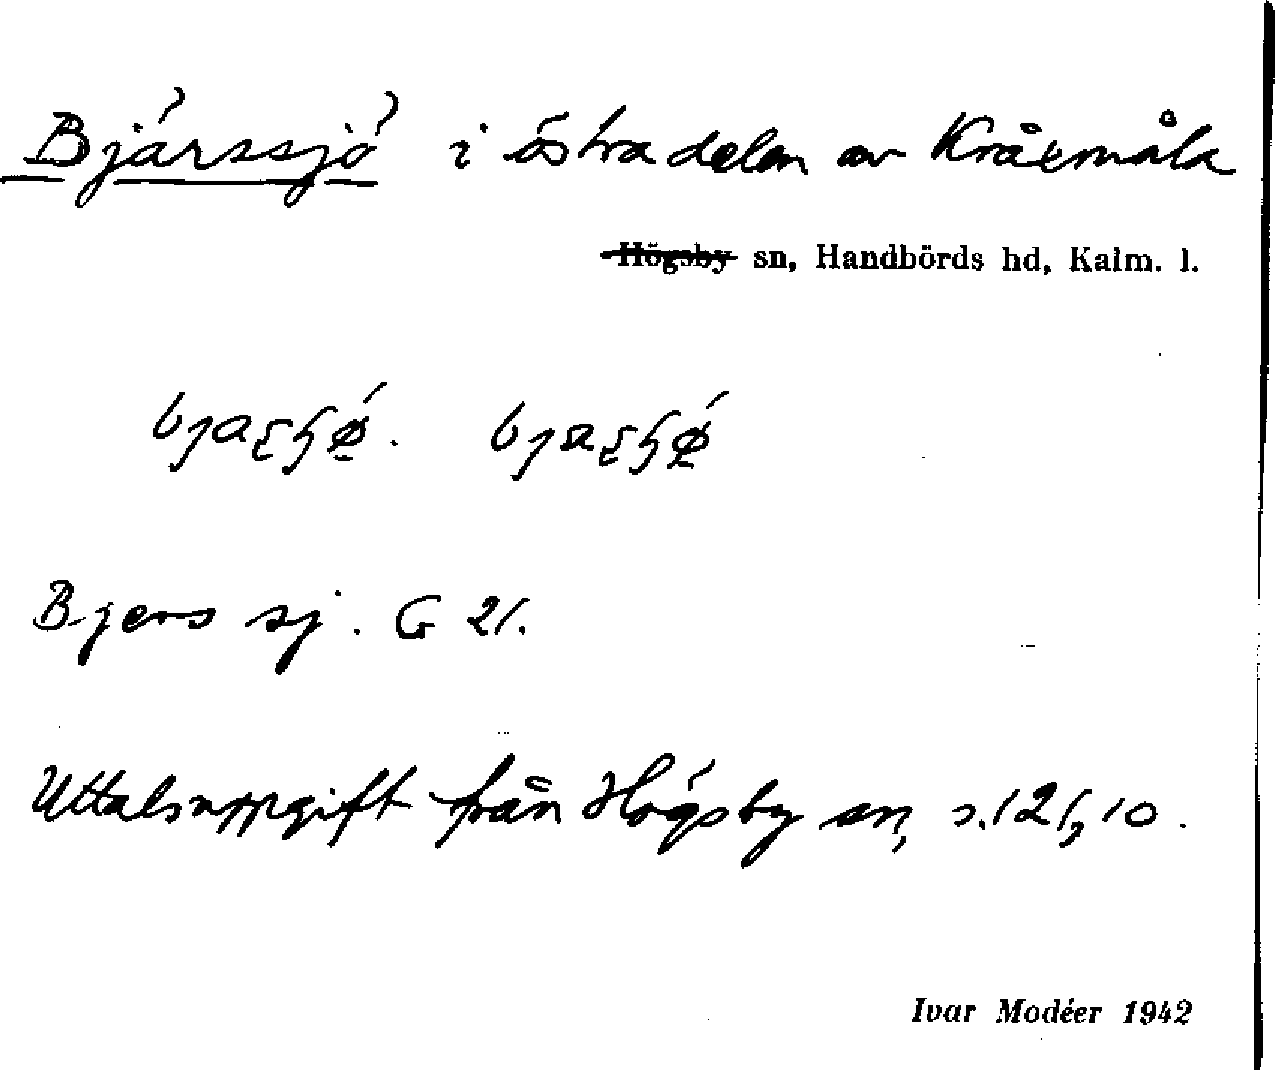 Bjärssjö i östra delen av Kråksmåla
Högsby sn, Handbörds hd, Kalm. l.
Bjers sj. G 21.
Uttalsuppgift från Högsby sn, s. 121, 10.
Ivar Modéer 1942